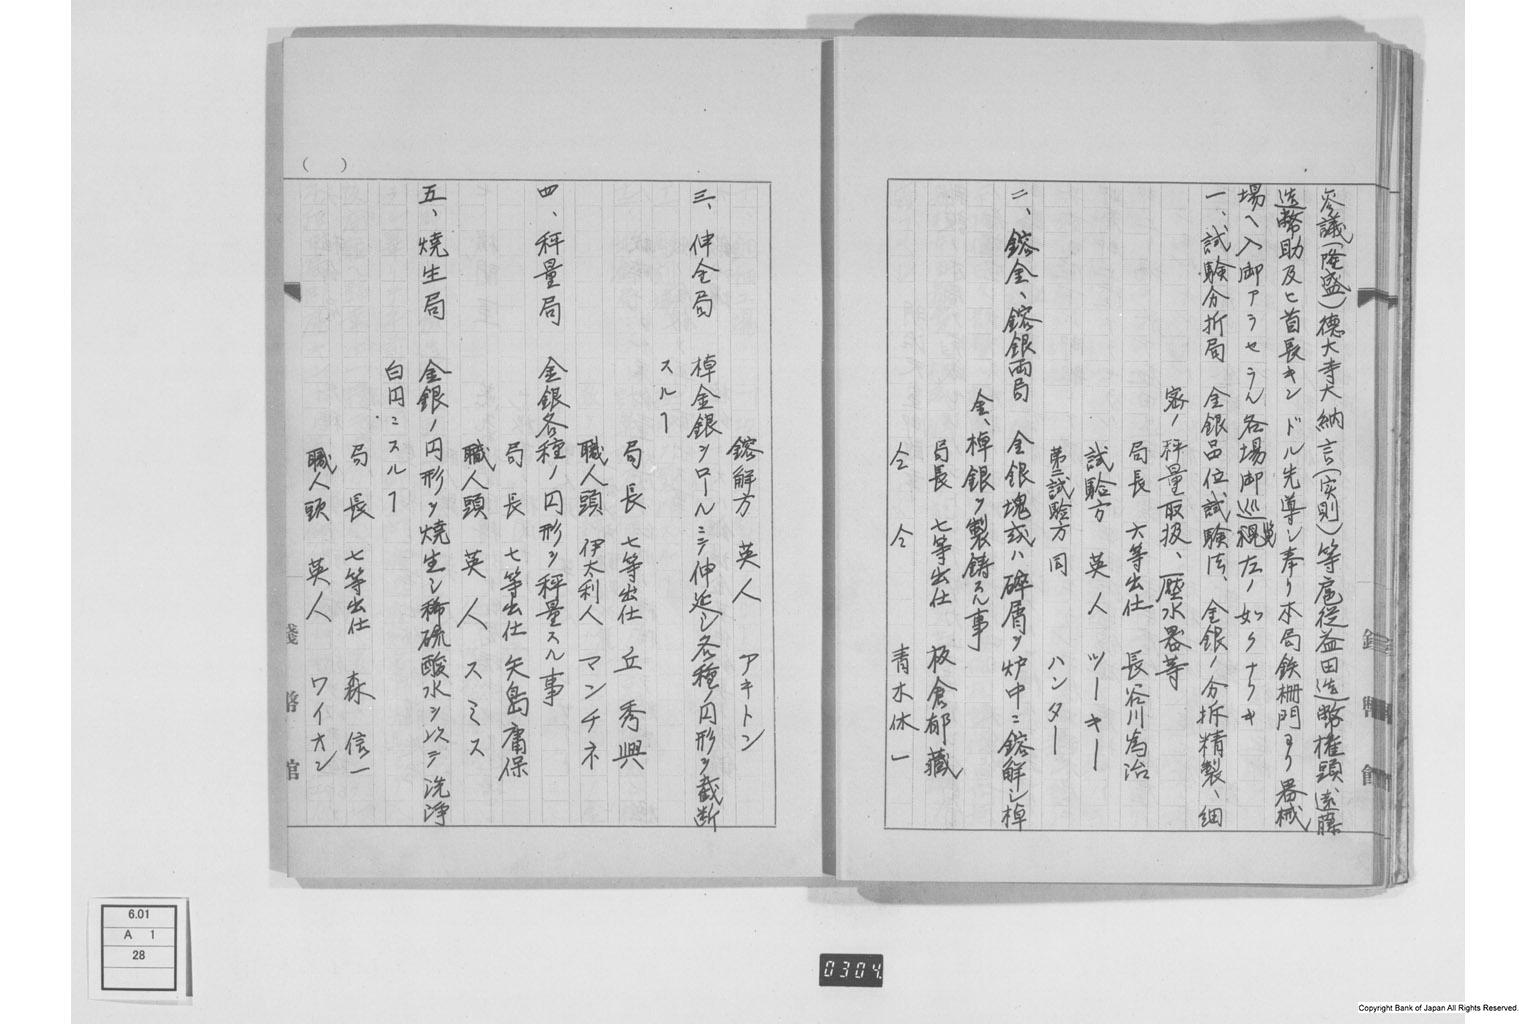 参議(隆盛)徳大寺大納言(実則)等扈従益田造幣権頭遠藤
造幣助及ヒ首長キンドル先導シ奉リ本局鉄柵門ヨリ器械
場ヘ入御アラセラル各場御巡視覧左ノ如クナリキ
一、試験分析局 金銀品位試験法、金銀ノ分拆精製、細
密ノ秤量取扱、壓水器等
局長 六等出仕 長谷川為治
試験方 英人 ツーキー
第二試験方 同 ハンター
二、鎔金、鎔銀両局 金銀塊或ハ砕屑ヲ炉中ニ鎔解シ棹
金、棹銀ヲ製鋳スル事
局長 七等出仕 板倉郁蔵
仝 仝 青木休一
鎔解方 英人 アキトン
三、伸金局 棹金銀ヲロールニテ伸延シ各種ノ円形ヲ裁断
スルヿ
局長 七等出仕 丘秀興
職人頭 伊太利人 マンチネ
四、秤量局 金銀各種ノ円形ヲ秤量スル事
局長 七等出仕 矢島庸保
職人頭 英人 スミス
五、焼生局 金銀ノ円形ヲ焼生シ稀硫酸水ヲ以テ洗浄
白円ニスルヿ
局長 七等出仕 森信一
職人頭 英人 ワイオン
( )
6.01
A 1
28
0304
Copyright Bank of Japan All Rights Reserved.